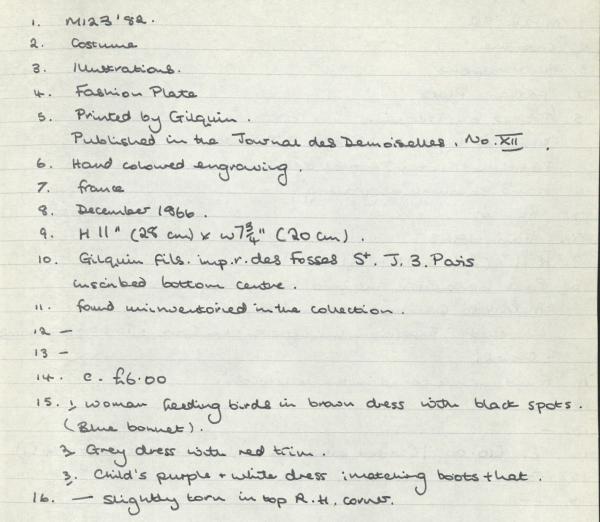 1. M123'82.
2. Costume
3. Illustrations.
4. Fashion Plate
5. Printed by Gilquin.
Published in the Journal des Demoiselles. No. XII.
6. Hand coloured engraving.
7. france
8. December 1866.
9. H 11" (28 cm) x W 7¾" (20 cm).
10. Gilquin fils. imp. r. des Fosses St. J. 3. Paris
inscribed bottom centre.
11. found uninventoried in the collection.
12 —
13 —
14. c. £6.00
15. 1, woman feeding birds in brown dress with black spots.
(Blue bonnet).
2, Grey dress with red trim.
3. Child's purple + white dress, matching boots + hat.
16. — slightly torn in top R.H. corner.